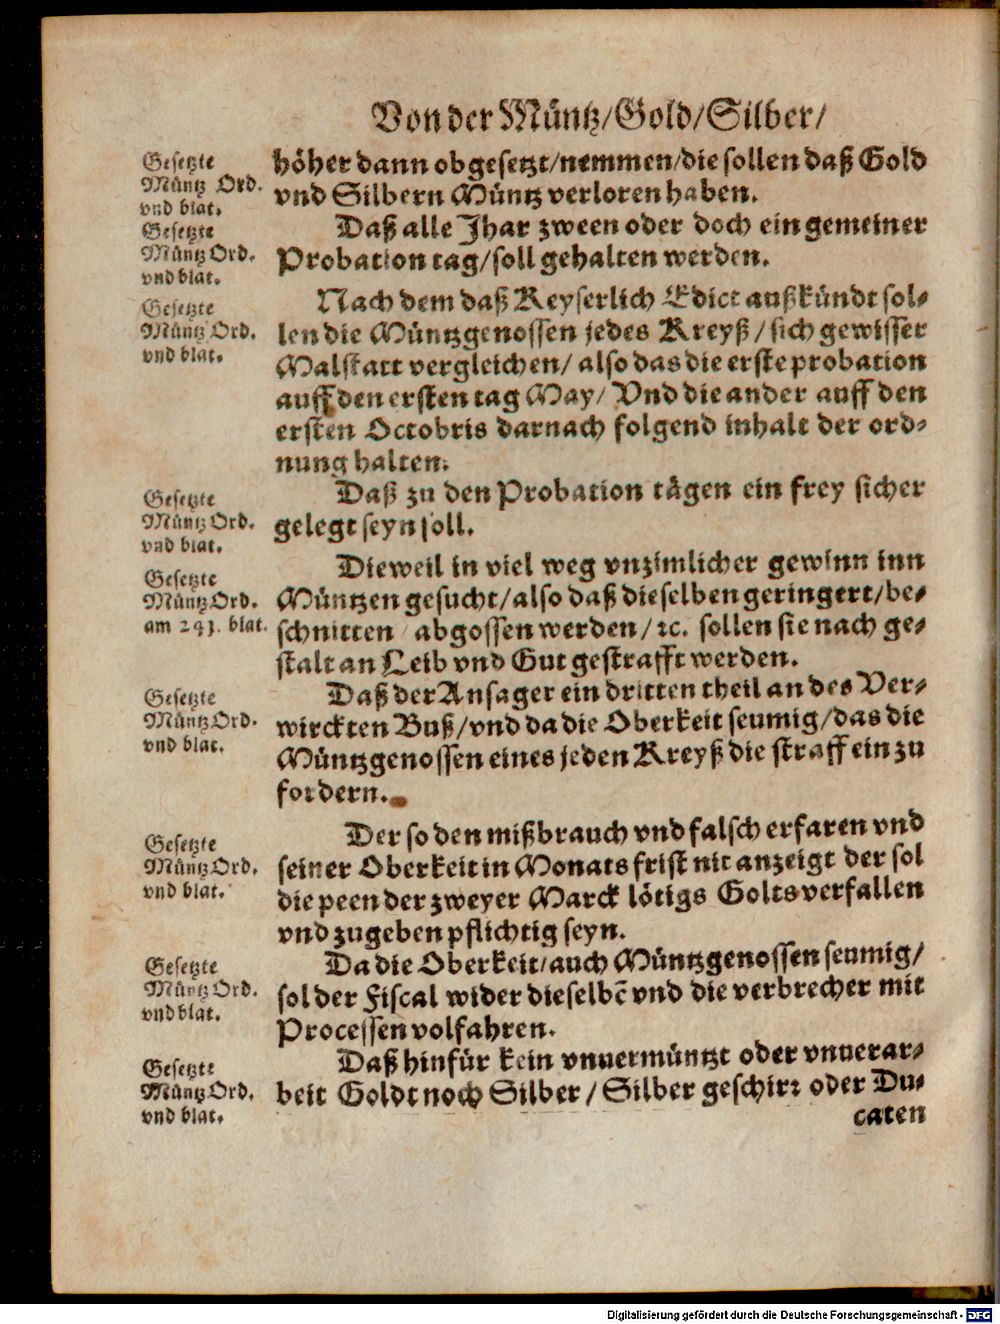 Von der Müntz/Gold/Silber/
Gesetzte
Müntz Ord.
vnd blat.
höher dann obgesetzt/nemmen/die sollen daß Gold
vnd Silbern Müntz verloren haben.
Gesetzte
Müntz Ord.
vnd blat.
Daß alle Jhar zween oder doch ein gemeiner
Probation tag/soll gehalten werden.
Gesetzte
Müntz Ord.
vnd blat.
Nach dem daß Keyserlich Edict außkündt sol-
len die Müntzgenossen jedes Kreyß/sich gewisser
Malstatt vergleichen/also das die erste probation
auff den ersten tag May/Vnd die ander auff den
ersten Octobris darnach folgend inhalt der ord-
nung halten.
Gesetzte
Müntz Ord.
vnd blat.
Daß zu den Probation tägen ein frey sicher
gelegt seyn soll.
Gesetzte
Müntz Ord.
am 291. blat.
Dieweil in viel weg vnzimlicher gewinn inn
Müntzen gesucht/also daß dieselben geringert/be-
schnitten/abgossen werden/ꝛc. sollen sie nach ge-
stalt an Leib vnd Gut gestrafft werden.
Gesetzte
Müntz Ord.
vnd blat.
Daß der Ansager ein dritten theil an des Ver-
wirckten Buß/vnd da die Oberkeit seumig/das die
Müntzgenossen eines jeden Kreyß die straff ein zu
fordern.
Gesetzte
Müntz Ord.
vnd blat.
Der so den mißbrauch vnd falsch erfaren vnd
seiner Oberkeit in Monats frist nit anzeigt der sol
die peen der zweyer Marck lötigs Golts verfallen
vnd zugeben pflichtig seyn.
Gesetzte
Müntz Ord.
vnd blat.
Da die Oberkeit/auch Müntzgenossen seumig/
sol der Fiscal wider dieselbē vnd die verbrecher mit
Processen volfahren.
Gesetzte
Müntz Ord.
vnd blat.
Daß hinfür kein vnuermüntzt oder vnuerar-
beit Goldt noch Silber/Silber geschirꝛ oder Du-
caten
Digitalisierung gefördert durch die Deutsche Forschungsgemeinschaft - DFG